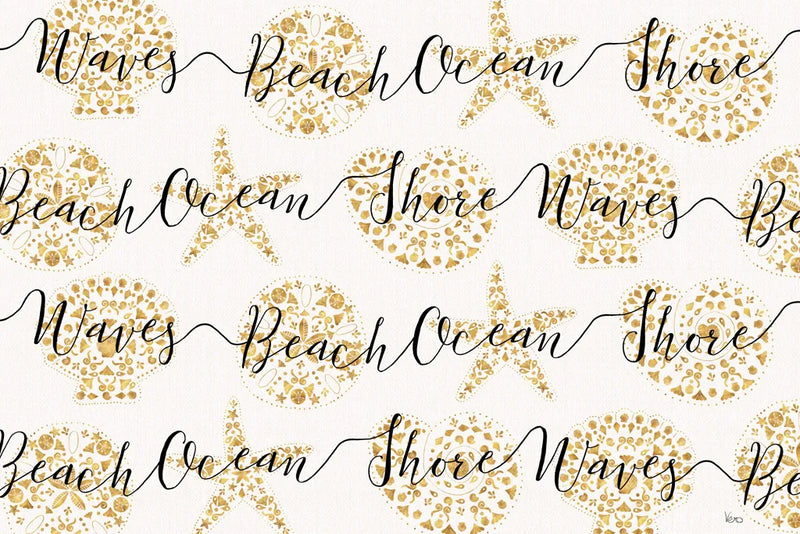 Waves Beach Ocean Shore
Beach Ocean Shore Waves Be
Waves Beach Ocean Shore
Beach Ocean Shore Waves Be
Vero